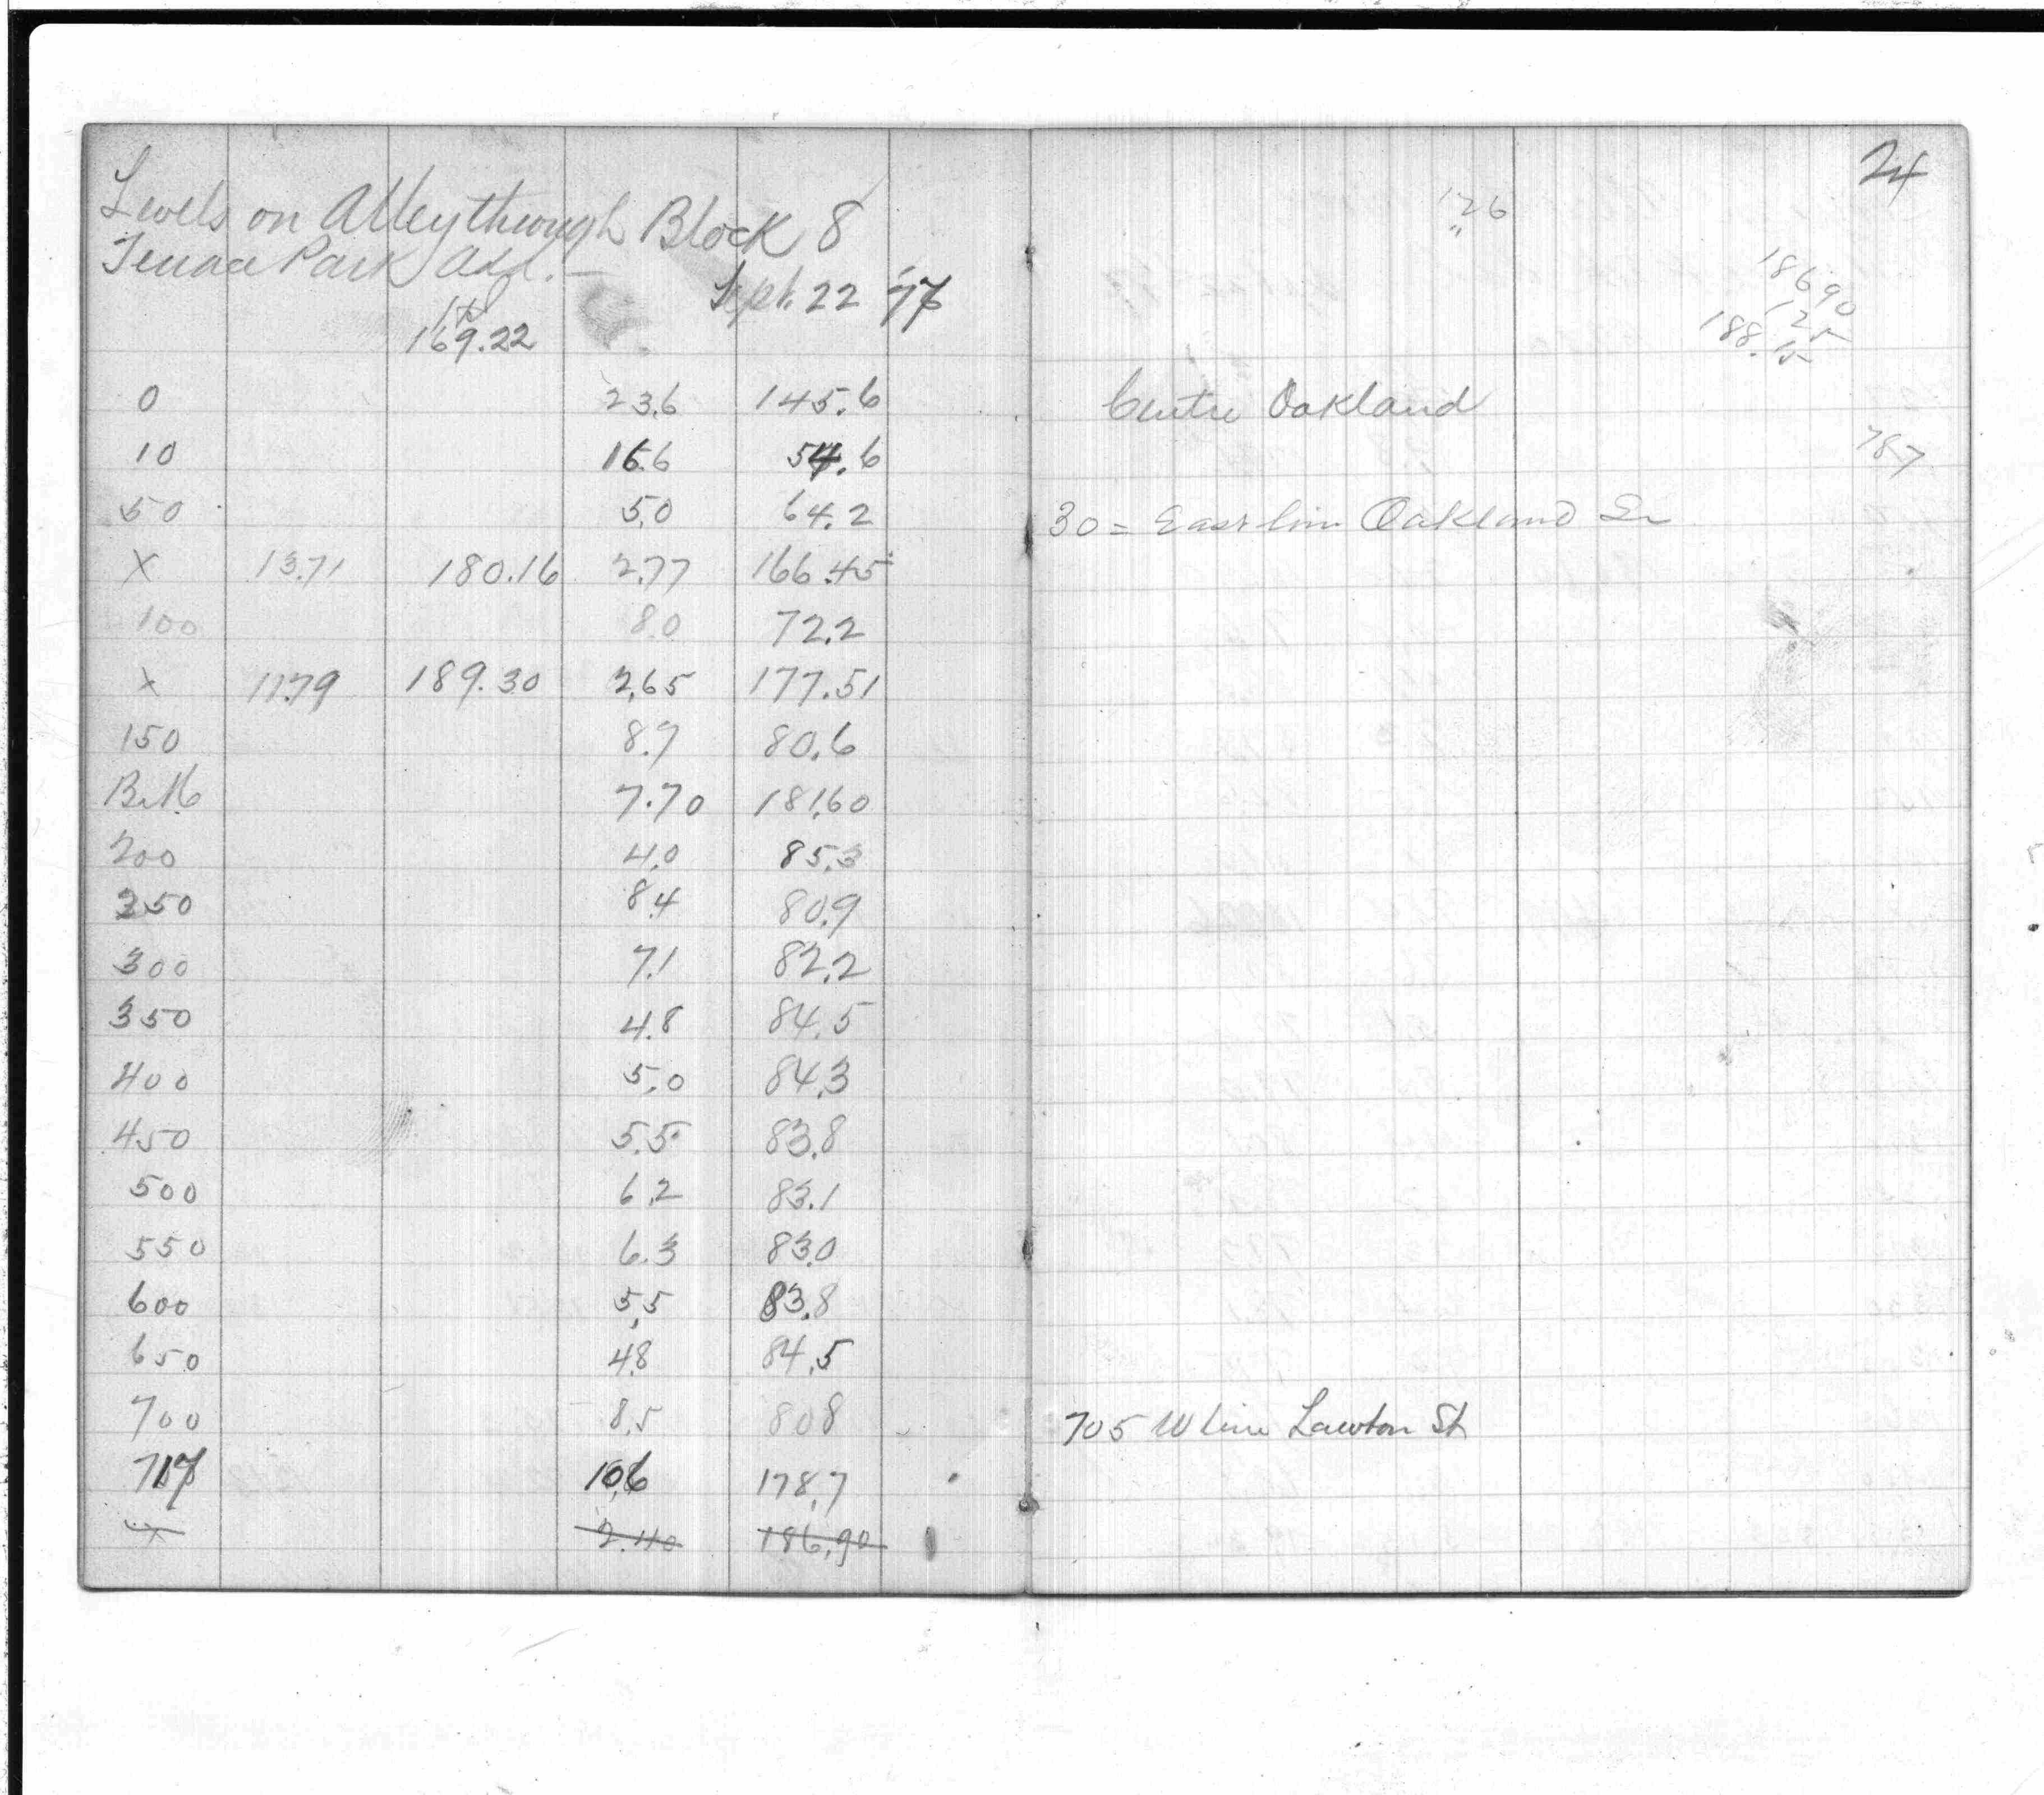 Levels on Alley through Block 8
Terrace Park Add. –
Sept. 22
169.22
0 23.6 145.6
10 54.6
50 5.0 64.2
X 13.71 180.16 2.77 166.45
100 8.0 72.2
X 11.79 189.30 2.65 177.51
150 8.7 80.6
B.M. 7.70 181.60
200 4.0 85.3
250 8.4 80.9
300 7.1 82.2
350 4.8 84.5
400 5.0 84.3
450 5.5 83.8
500 6.2 83.1
550 6.3 83.0
600 5.5 83.8
650 4.8 84.5
700 8.5 80.8
717 10.6 178.7
X 2.40 186.90
24
126
"
186 90
1 25
188.15
Centre Oakland
787
30 = East line Oakland
705 W line Lawton St